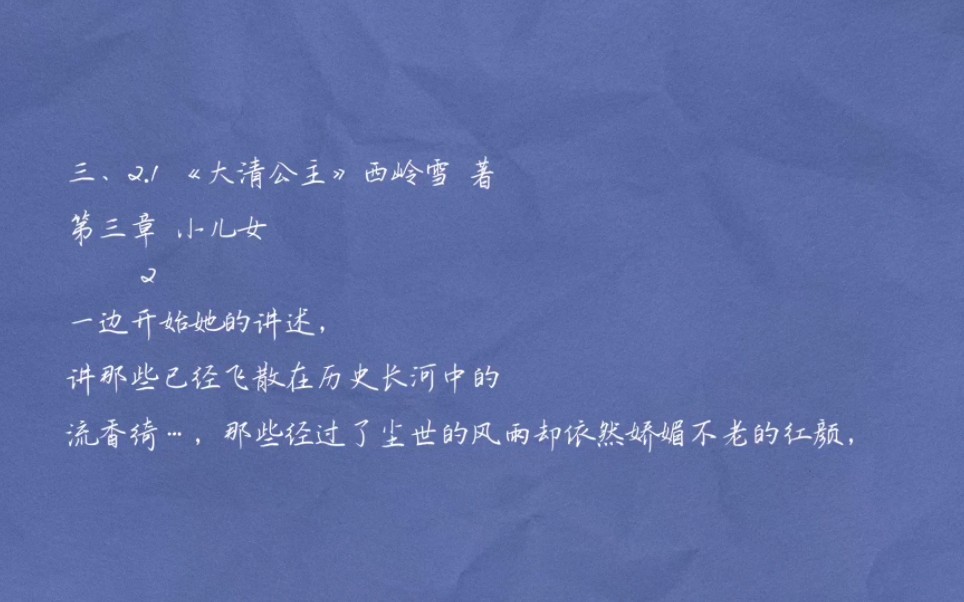 三、2.1 《大清公主》西岭雪 著
第三章 小儿女
2
一边开始她的讲述，
讲那些已经飞散在历史长河中的
流香绮…，那些经过了尘世的风雨却依然娇媚不老的红颜，